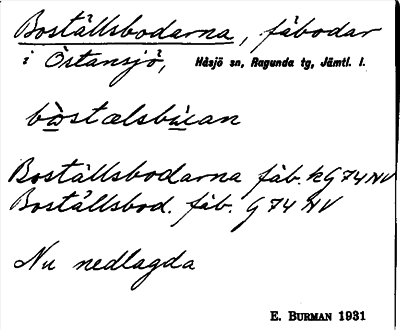 Boställsbodarna, fäbodar
i Östansjö, Håsjö sn, Ragunda tg, Jämtl. l.
Boställsbodarna fäb. kG74NV
Boställsbod. fäb. G74NV
Nu nedlagda
E. BURMAN 1931